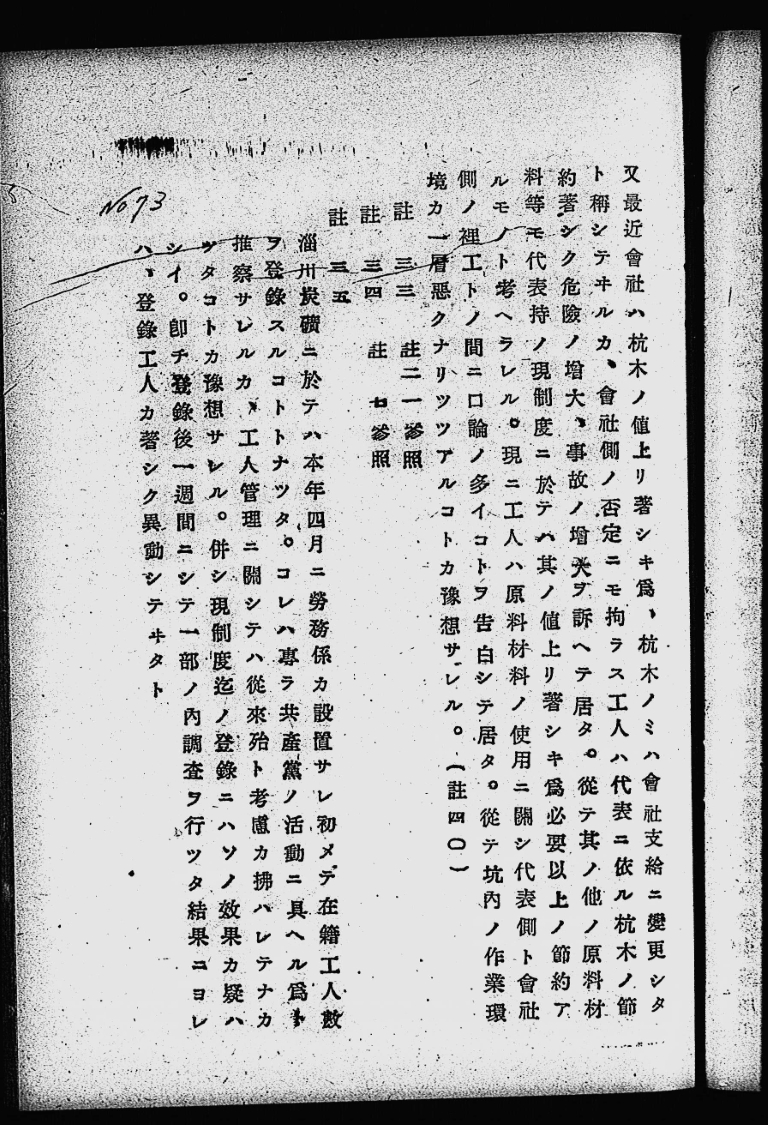 又最近會社ハ杭木ノ値上リ著シキ爲、杭木ノミハ會社支給ニ變更シタ
ト稱シテヰルカ、會社側ノ否定ニモ拘ラス工人ハ代表ニ依ル杭木ノ節
約著シク危險ノ增大、事故ノ增大ヲ訴ヘテ居タ。從テ其ノ他ノ原料材
料等モ代表持ノ現制度ニ於テハ其ノ値上リ著シキ爲必要以上ノ節約ア
ルモノト考ヘラレル。現ニ工人ハ原料材料ノ使用ニ關シ代表側ト會社
側ノ裡工トノ間ニ口論ノ多イコトヲ告白シテ居タ。從テ坑內ノ作業環
境カ一層惡クナリツツアルコトカ豫想サレル。(註四〇)
註 三三 註二一參照
註 三四 註 七參照
註 三五
淄川炭礦ニ於テハ本年四月ニ勞務係カ設置サレ初メテ在籍工人數
ヲ登錄スルコトトナツタ。コレハ專ラ共產黨ノ活動ニ具ヘル爲ト
推察サレルカ、工人管理ニ關シテハ從來殆ト考慮カ拂ハレテナカ
ツタコトカ豫想サレル。併シ現制度迄ノ登錄ニハソノ效果カ疑ハ
シイ。卽チ登錄後一週間ニシテ一部ノ內調查ヲ行ツタ結果ニヨレ
ハ、登錄工人カ著シク異動シテヰタト
No 73